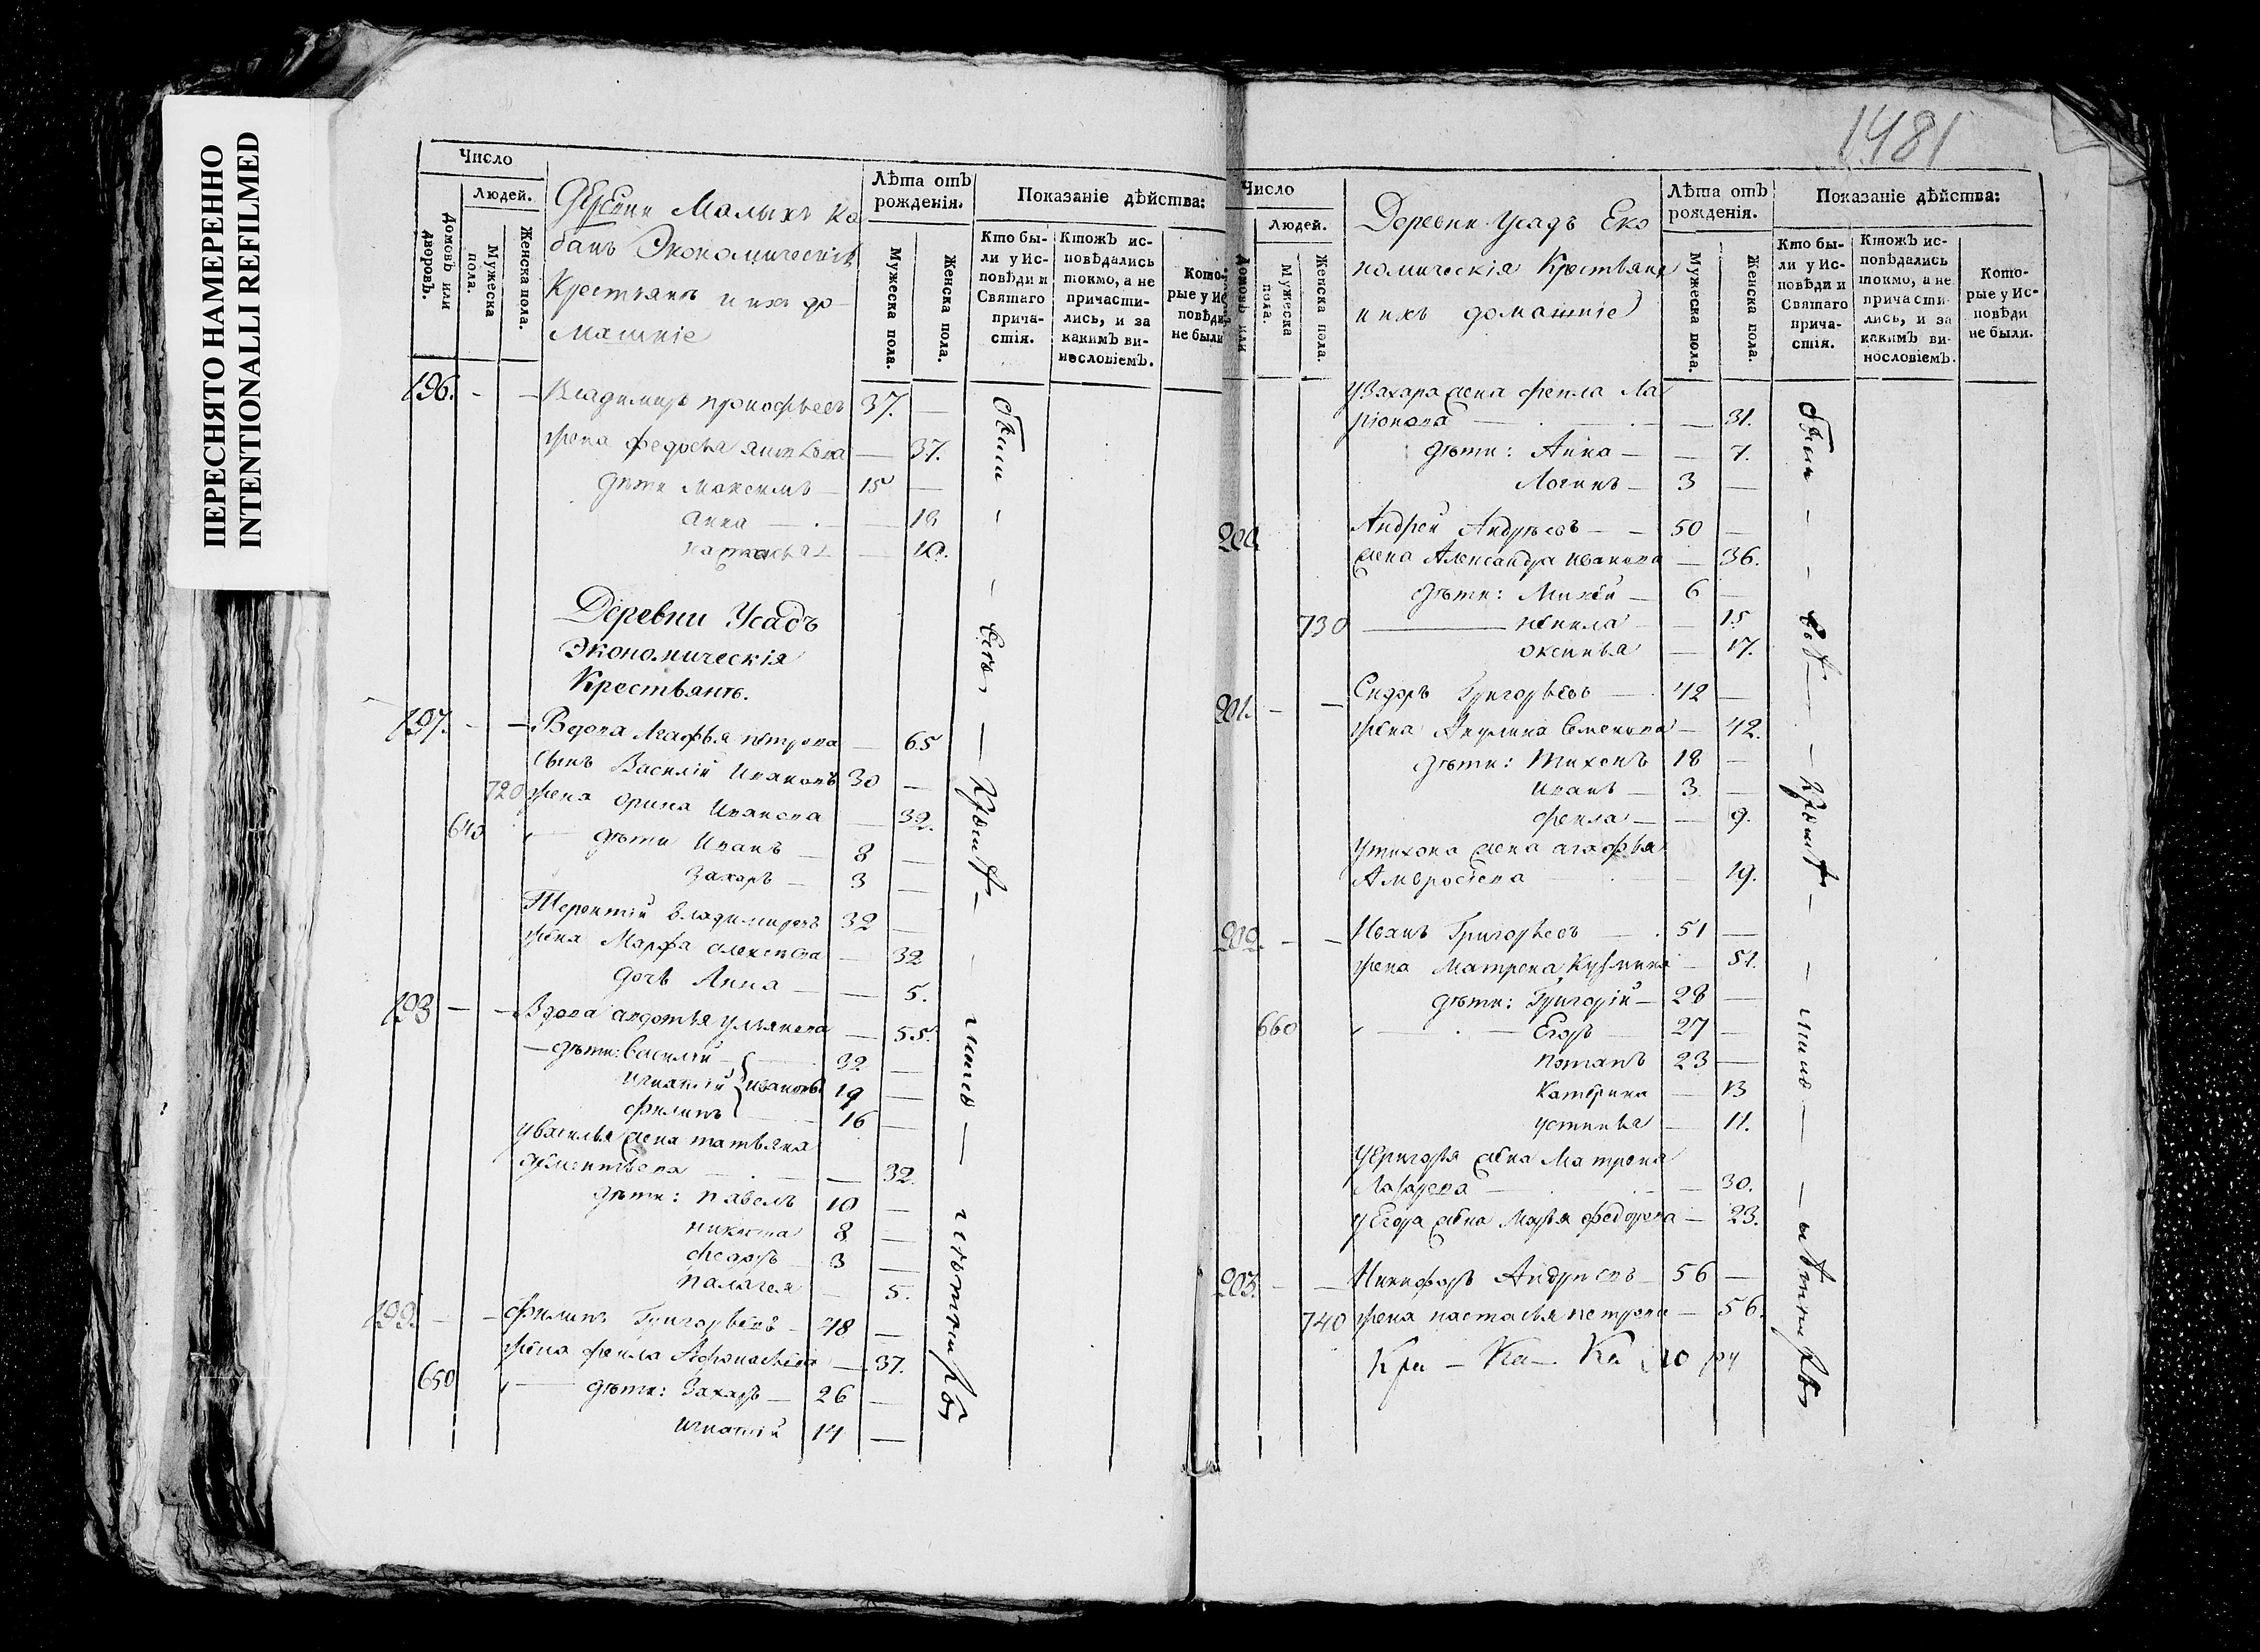 ПЕРЕСНЯТО НАМЕРЕННО
INTENTIONALLI REFILMED
Число
Людей.
Домовъ или дворовъ.
Мужеска пола.
Женска пола.
Деревни Малыхъ Ка
банъ Экономическія
Крестьянъ и ихъ до
машніе
Лѣта отъ рожденія.
Мужеска пола.
Женска пола.
Показаніе дѣйства:
Кто бы-
ли у Ис-
повѣди и
Святаго
прича-
стія.
Ктожъ ис-
повѣдались
токмо, а не
причасти-
лись, и за
какимъ ви-
нословіемъ.
Кото-
рые у Ис
повѣди
не были
196. - - Владимиръ прокофьевъ 37. —
жена федосья — 37.
дѣти Максимъ — 15 —
анна — — 18
настасья — 10.
Деревни Усадъ
Экономическія
Крестьянъ.
197. - - Вдова Агафья петрова — 65
сынъ Василій Ивановъ 30 —
720 жена орина Иванова — 32.
640 дѣти Иванъ — 8 —
Захаръ — 3 —
Терентій владимировъ 32 —
жена Марфа алексѣева — 32
дочь Анна — — 5.
198 — — Вдова авдотья ульянова — 55.
— дѣти: василій 32 —
игнатій ивановы 19 —
филипъ 16 —
у василья жена татьяна
— 32.
дѣти: павелъ 10 —
никита 8 —
федоръ 3 —
палагея — 5.
199. — — филипъ Григорьевъ — 48 —
жена фекла Афонасьева — 37.
650 — дѣти: Захаръ — 26 —
игнатій 14 —
были — всѣ — —
1481
Число
Людей.
Домовъ или
Мужеска пола.
Женска пола.
Деревни Усадъ Еко
номическія Крестьяне
и ихъ домашніе
Лѣта отъ рожденія.
Мужеска пола.
Женска пола.
Показаніе дѣйства:
Кто бы-
ли у Ис-
повѣди и
Святаго
прича-
стія.
Ктожъ ис-
повѣдались
токмо, а не
причасти-
лись, и за
какимъ ви-
нословіемъ.
Кото-
рые у Ис-
повѣди
не были.
у Захара жена фекла Ла
ріонова — — 31.
дѣти: Анна — — 7.
Логинъ — 3 —
200. Андрей Андрѣевъ — — 50 —
жена Александра иванова — 36.
дѣти: Михей — 6 —
730 — некила — 15
оксинья — 17.
201. - — Сидоръ Григорьевъ — 42 —
жена Акулина Семенова — 42.
дѣти: Тихонъ 18 —
иванъ — 3 —
фекла — — 9.
у тихона жена агафья
Амвросіева — 19.
202. - — Иванъ Григорьевъ — 51 —
жена Матрена Кузмина — 51.
дѣти: Григорій — 28 —
660 — Егоръ 27 —
потапъ 23 —
Катерина — 13
устинья — 11.
у Григорья жена Матрена
Лазарева — — 30.
у Егора жена Марья федорова — 23.
203. - — Никифоръ Андрѣевъ — 56 —
740 жена настасья петрова — 56.
были — —